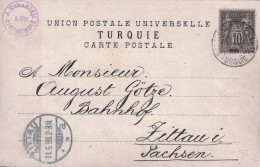 UNION POSTALE UNIVERSELLE
TURQUIE
CARTE POSTALE.
10
TURQUIE
A Monsieur
August Götze
Bahnhof
Zittau i.
Sachsen.
ZITTAU